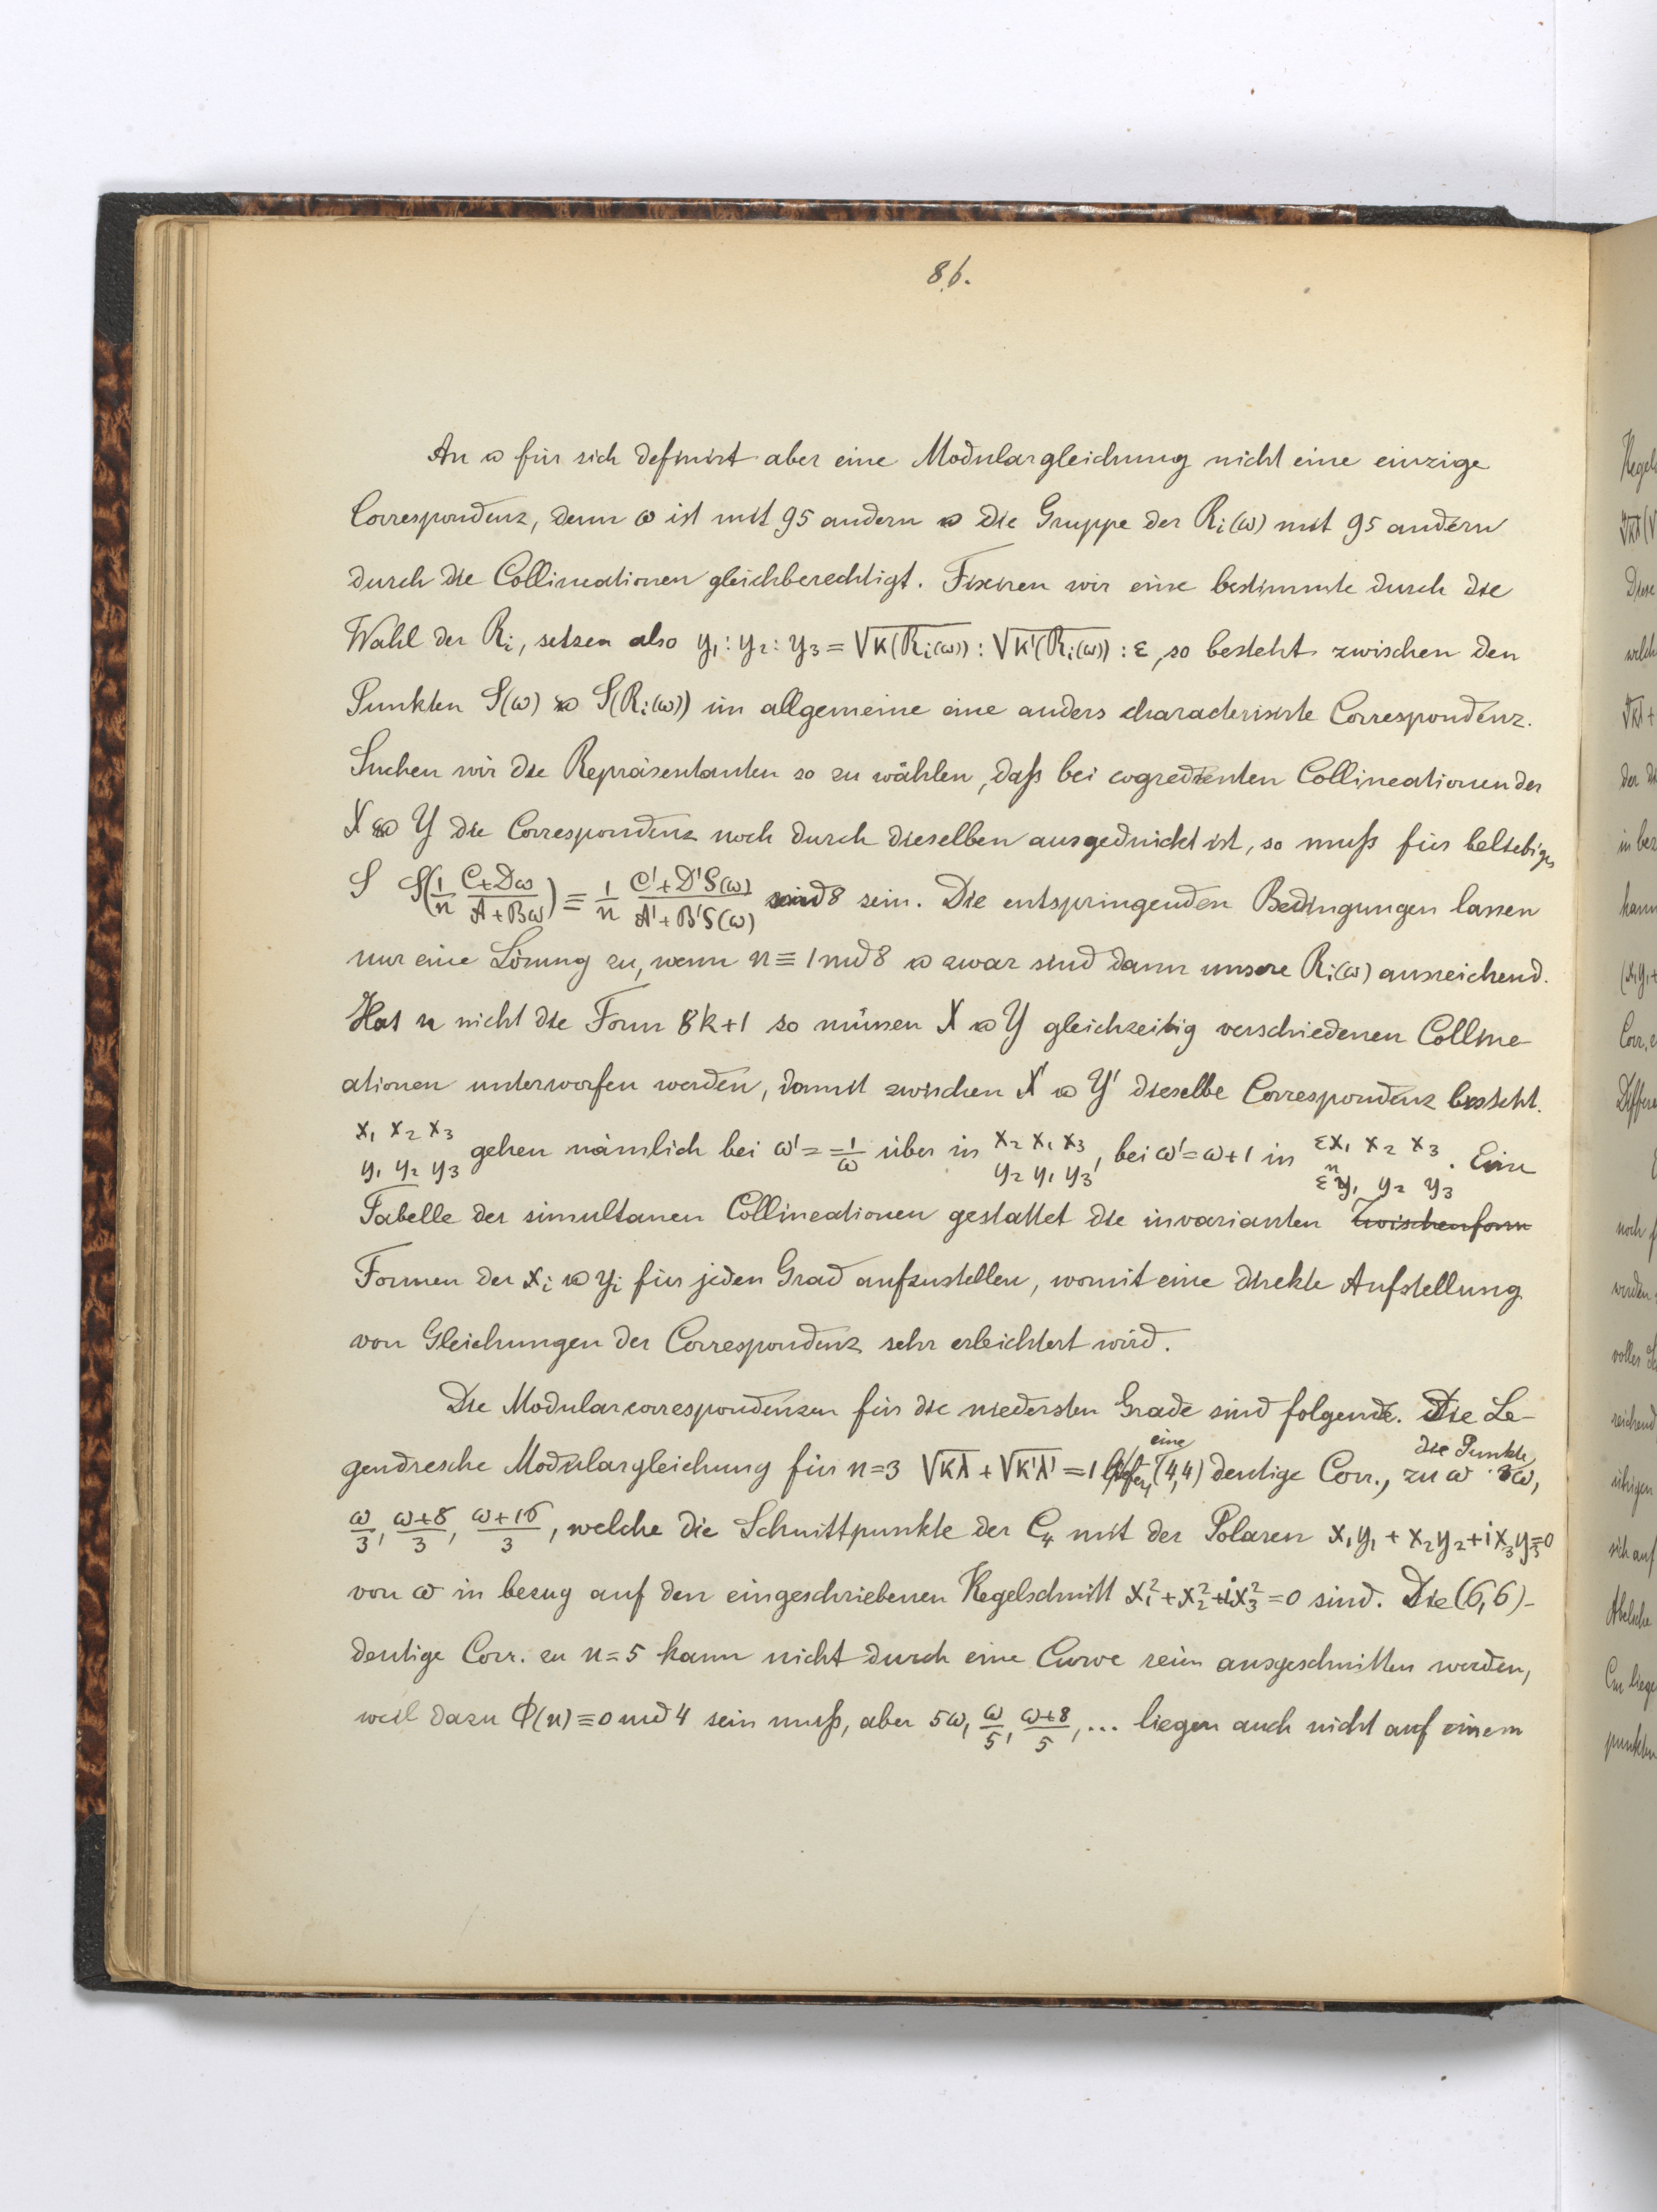 86.
An & für sich definirt aber eine Modulargleichung nicht eine einzige
Correspondenz, denn ω ist mit 95 andern & die Gruppe der Rᵢ(ω) mit 95 andern
durch die Collineationen gleichberechtigt. Fixiren wir eine bestimmte durch die
Wahl der Rᵢ, setzen also y₁:y₂:y₃ = √κ(Rᵢ(ω)) : √κ'(Rᵢ(ω)) : ε, so besteht zwischen den
Punkten S(ω) & S(Rᵢ(ω)) im allgemeine eine anders characterisirte Correspondenz.
Suchen wir die Repräsentanten so zu wählen, daß bei cogredienten Collineationen der
X & Y die Correspondenz noch durch dieselben ausgedrückt ist, so muß für beliebiges
S S(1/n (C+Dω)/(A+Bω)) ≡ 1/n (C'+D'S(ω))/(A'+B'S(ω)) mod 8 sein. Die entspringenden Bedingungen lassen
nur eine Lösung zu, wenn n ≡ 1 mod 8 & zwar sind dann unsere Rᵢ(ω) ausreichend.
Hat n nicht die Form 8k+1 so müssen X & Y gleichzeitig verschiedenen Colline-
ationen unterworfen werden, damit zwischen X' & Y' dieselbe Correspondenz besteht.
x₁ x₂ x₃ / y₁ y₂ y₃ gehen nämlich bei ω' = -1/ω über in x₂ x₁ x₃ / y₂ y₁ y₃, bei ω'=ω+1 in εx₁ x₂ x₃ / εⁿy₁ y₂ y₃. Eine
Tabelle der simultanen Collineationen gestattet die invarianten Zwischenform
Formen der xᵢ & yᵢ für jeden Grad aufzustellen, womit eine direkte Aufstellung
von Gleichungen der Correspondenz sehr erleichtert wird.
Die Modularcorrespondenzen für die niedersten Grade sind folgende. Die Le-
gendresche Modulargleichung für n=3 √κλ + √κ'λ' = 1 eine (4,4) deutige Corr., zu ω die Punkte 3ω,
ω/3, (ω+8)/3, (ω+16)/3, welche die Schnittpunkte der C₄ mit der Polaren x₁y₁ + x₂y₂ + ix₃y₃=0
von ω in bezug auf den eingeschriebenen Kegelschnitt x₁² + x₂² + ix₃² = 0 sind. Die (6,6)-
deutige Corr. zu n=5 kann nicht durch eine Curve rein ausgeschnitten werden,
weil dazu Φ(n) ≡ 0 mod 4 sein muß, aber 5ω, ω/5, (ω+8)/5, ... liegen auch nicht auf einem